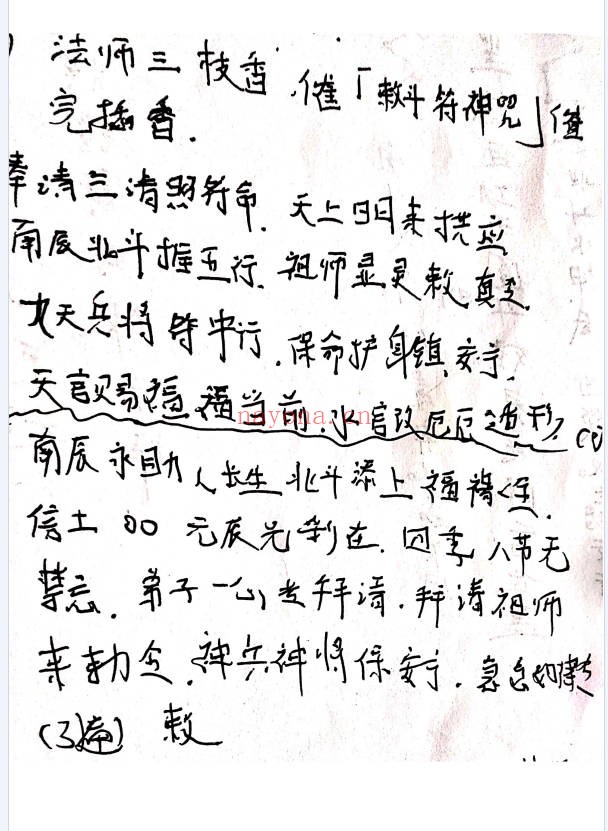 法师三枝香，催「敕斗符神咒」催
完插香.
奉请三清照符命. 天上日来拱应
南辰北斗推五行. 祖师显灵敕真
九天兵将守中行. 保命护身镇安宁.
天官赐福福当前 水官改厄厄
南辰永助人长生 北斗添上福禄
信士 〇〇 元辰光彩在. 四季八节无
禁忌. 弟子一心拜请. 拜请祖师
来敕令. 神兵神将保安宁. 急急如律
(3遍) 敕
nayona.cn